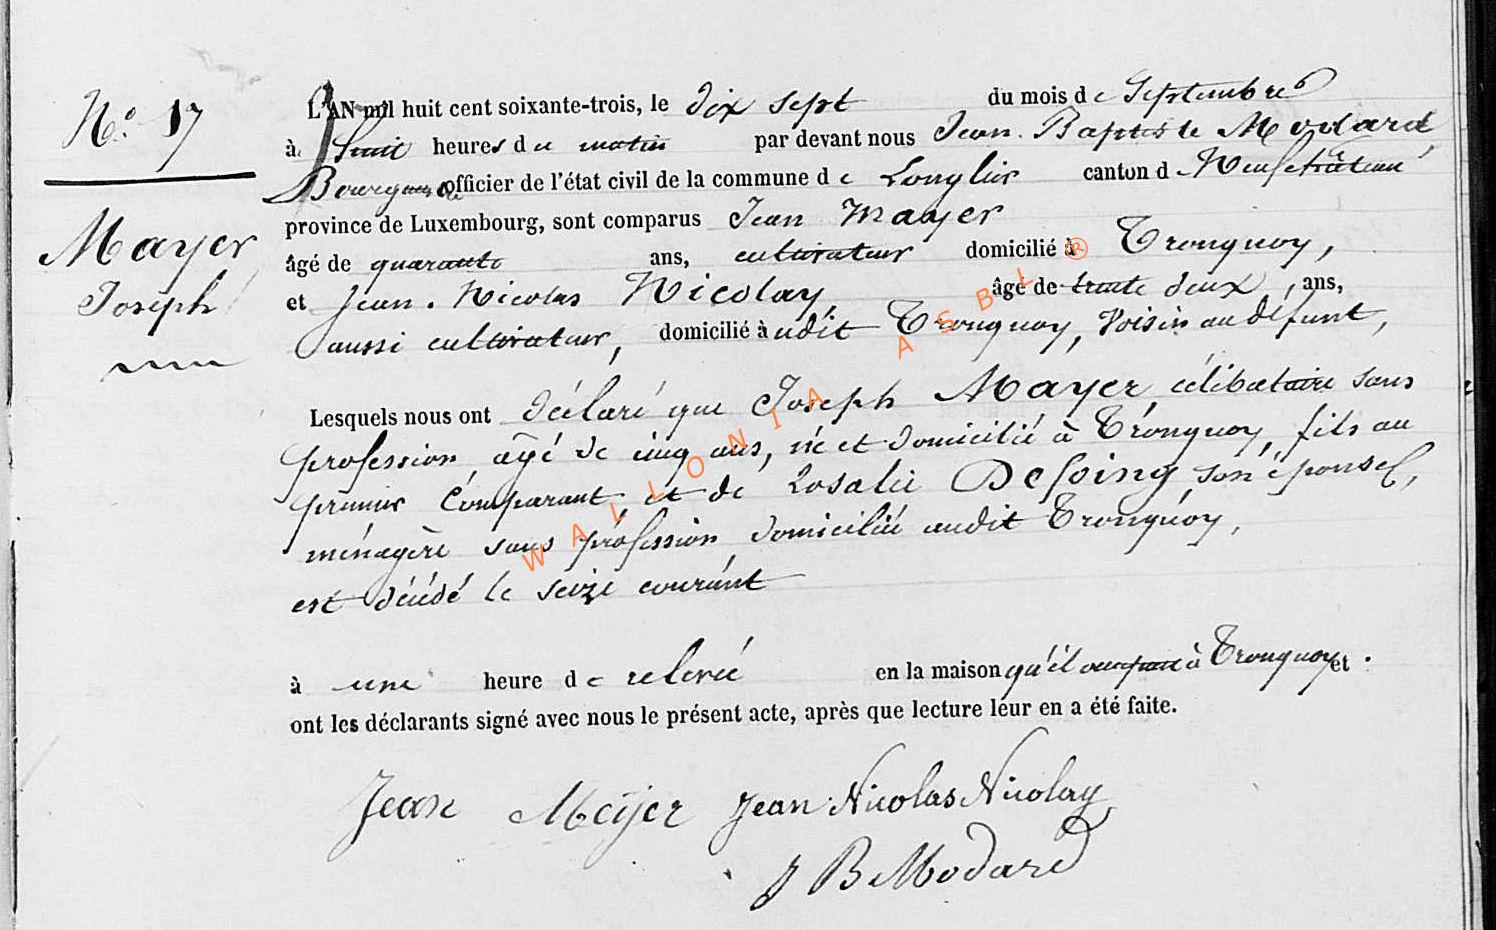 N.o 17
Mayer
Joseph
L'AN mil huit cent soixante-trois, le dix sept du mois de Septembre
à huit heures du matin par devant nous Jean-Baptiste Modard,
Bourgmestre officier de l'état civil de la commune de Longlier canton d Neufchâteau
province de Luxembourg, sont comparus Jean Mayer
âgé de quarante ans, cultivateur domicilié à Tronquoy,
et Jean-Nicolas Nicolay, âgé de trente deux, ans,
aussi cultivateur, domicilié à udit Tronquoy, voisin au défunt,
Lesquels nous ont déclaré que Joseph Mayer, célibataire sans
profession, âgé de cinq ans, né et domicilié à Tronquoy, fils au
premier Comparant et de Rosalie Desoing son épouse,
ménagère sans profession domiciliée audit Tronquoy,
est décédé le seize courant
à une heure de relevée en la maison qu'il occupait à Tronquoy et
ont les déclarants signé avec nous le présent acte, après que lecture leur en a été faite.
Jean Meijer Jean Nicolas Nicolay
J B Modard
WALLONIA ASBL ®